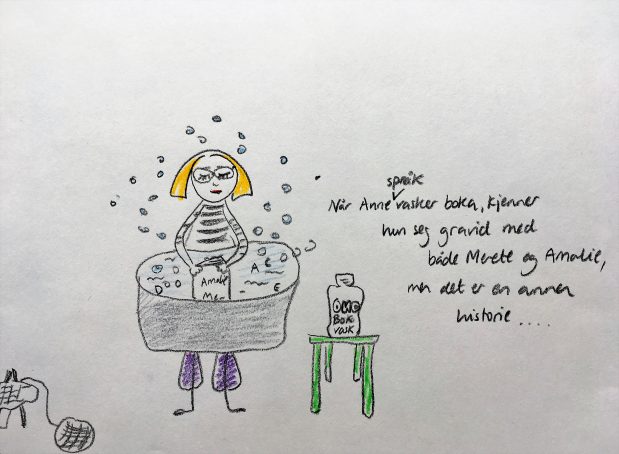 språk
Når Anne vasker boka, kjenner
hun seg gravid med
både Merete og Amalie,
men det er en annen
historie .....
A E
D
E
Me
OMO
Bok
vask